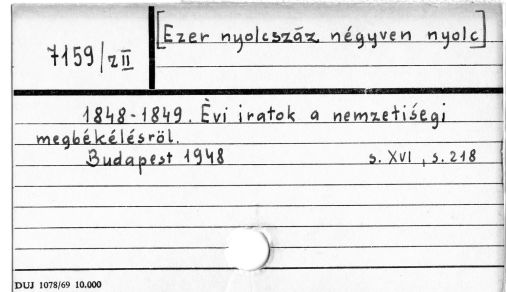 7159/zII
[Ezer nyolcszáz négyven nyolc]
1848-1849. Èvi iratok a nemzetiségi
megbékélésröl.
Budapest 1948 s. XVI, s. 218
DUJ 1078/69 10.000